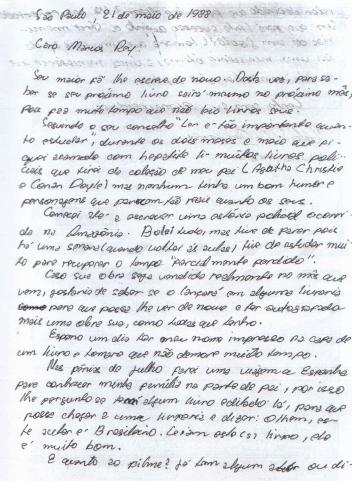 São Paulo, 21 de maio de 1988
Caro Marcos Rey
Seu maior fã lhe escreve de novo. Desta vez, para sa-
ber se seu próximo livro sairá mesmo no próximo mês,
pois faz muito tempo que não leio livros seus.
Seguindo o seu conselho "Ler é tão importante quan-
to estudar", durante os dois meses e meio que fi-
quei acamado com hepatite li muitos livros poli-
ciais que tirei da coleção do meu pai (Agatha Christie
e Conan Doyle) mas nenhum tinha um bom humor e
personagens que pareciam tão reais quanto os seus.
Comecei até a escrever uma estória policial ocorri-
da na Amazônia. Bolei tudo, mas tive de parar pois
há uma semana (quando voltei às aulas) tive de estudar mui-
to para recuperar o tempo "parcialmente perdido".
Caso sua obra seja vendida realmente no mês que
vem, gostaria de saber se o lançará em alguma livraria
para que possa lhe ver de novo e ter autografada
mais uma obra sua, como todas que tenho.
Espero um dia ter meu nome impresso na capa de
um livro e tomara que não demore muito tempo.
Nas férias de julho farei uma viagem a Espanha
para conhecer minha família na parte de pai, por isso
lhe pergunto se tem algum livro editado lá, para que
possa chegar a uma livraria e dizer: Olhem, es-
te autor é Brasileiro. Leiam este(s) livro, ele
é muito bom.
E quanto ao filme? Já tem algum ator ou di-